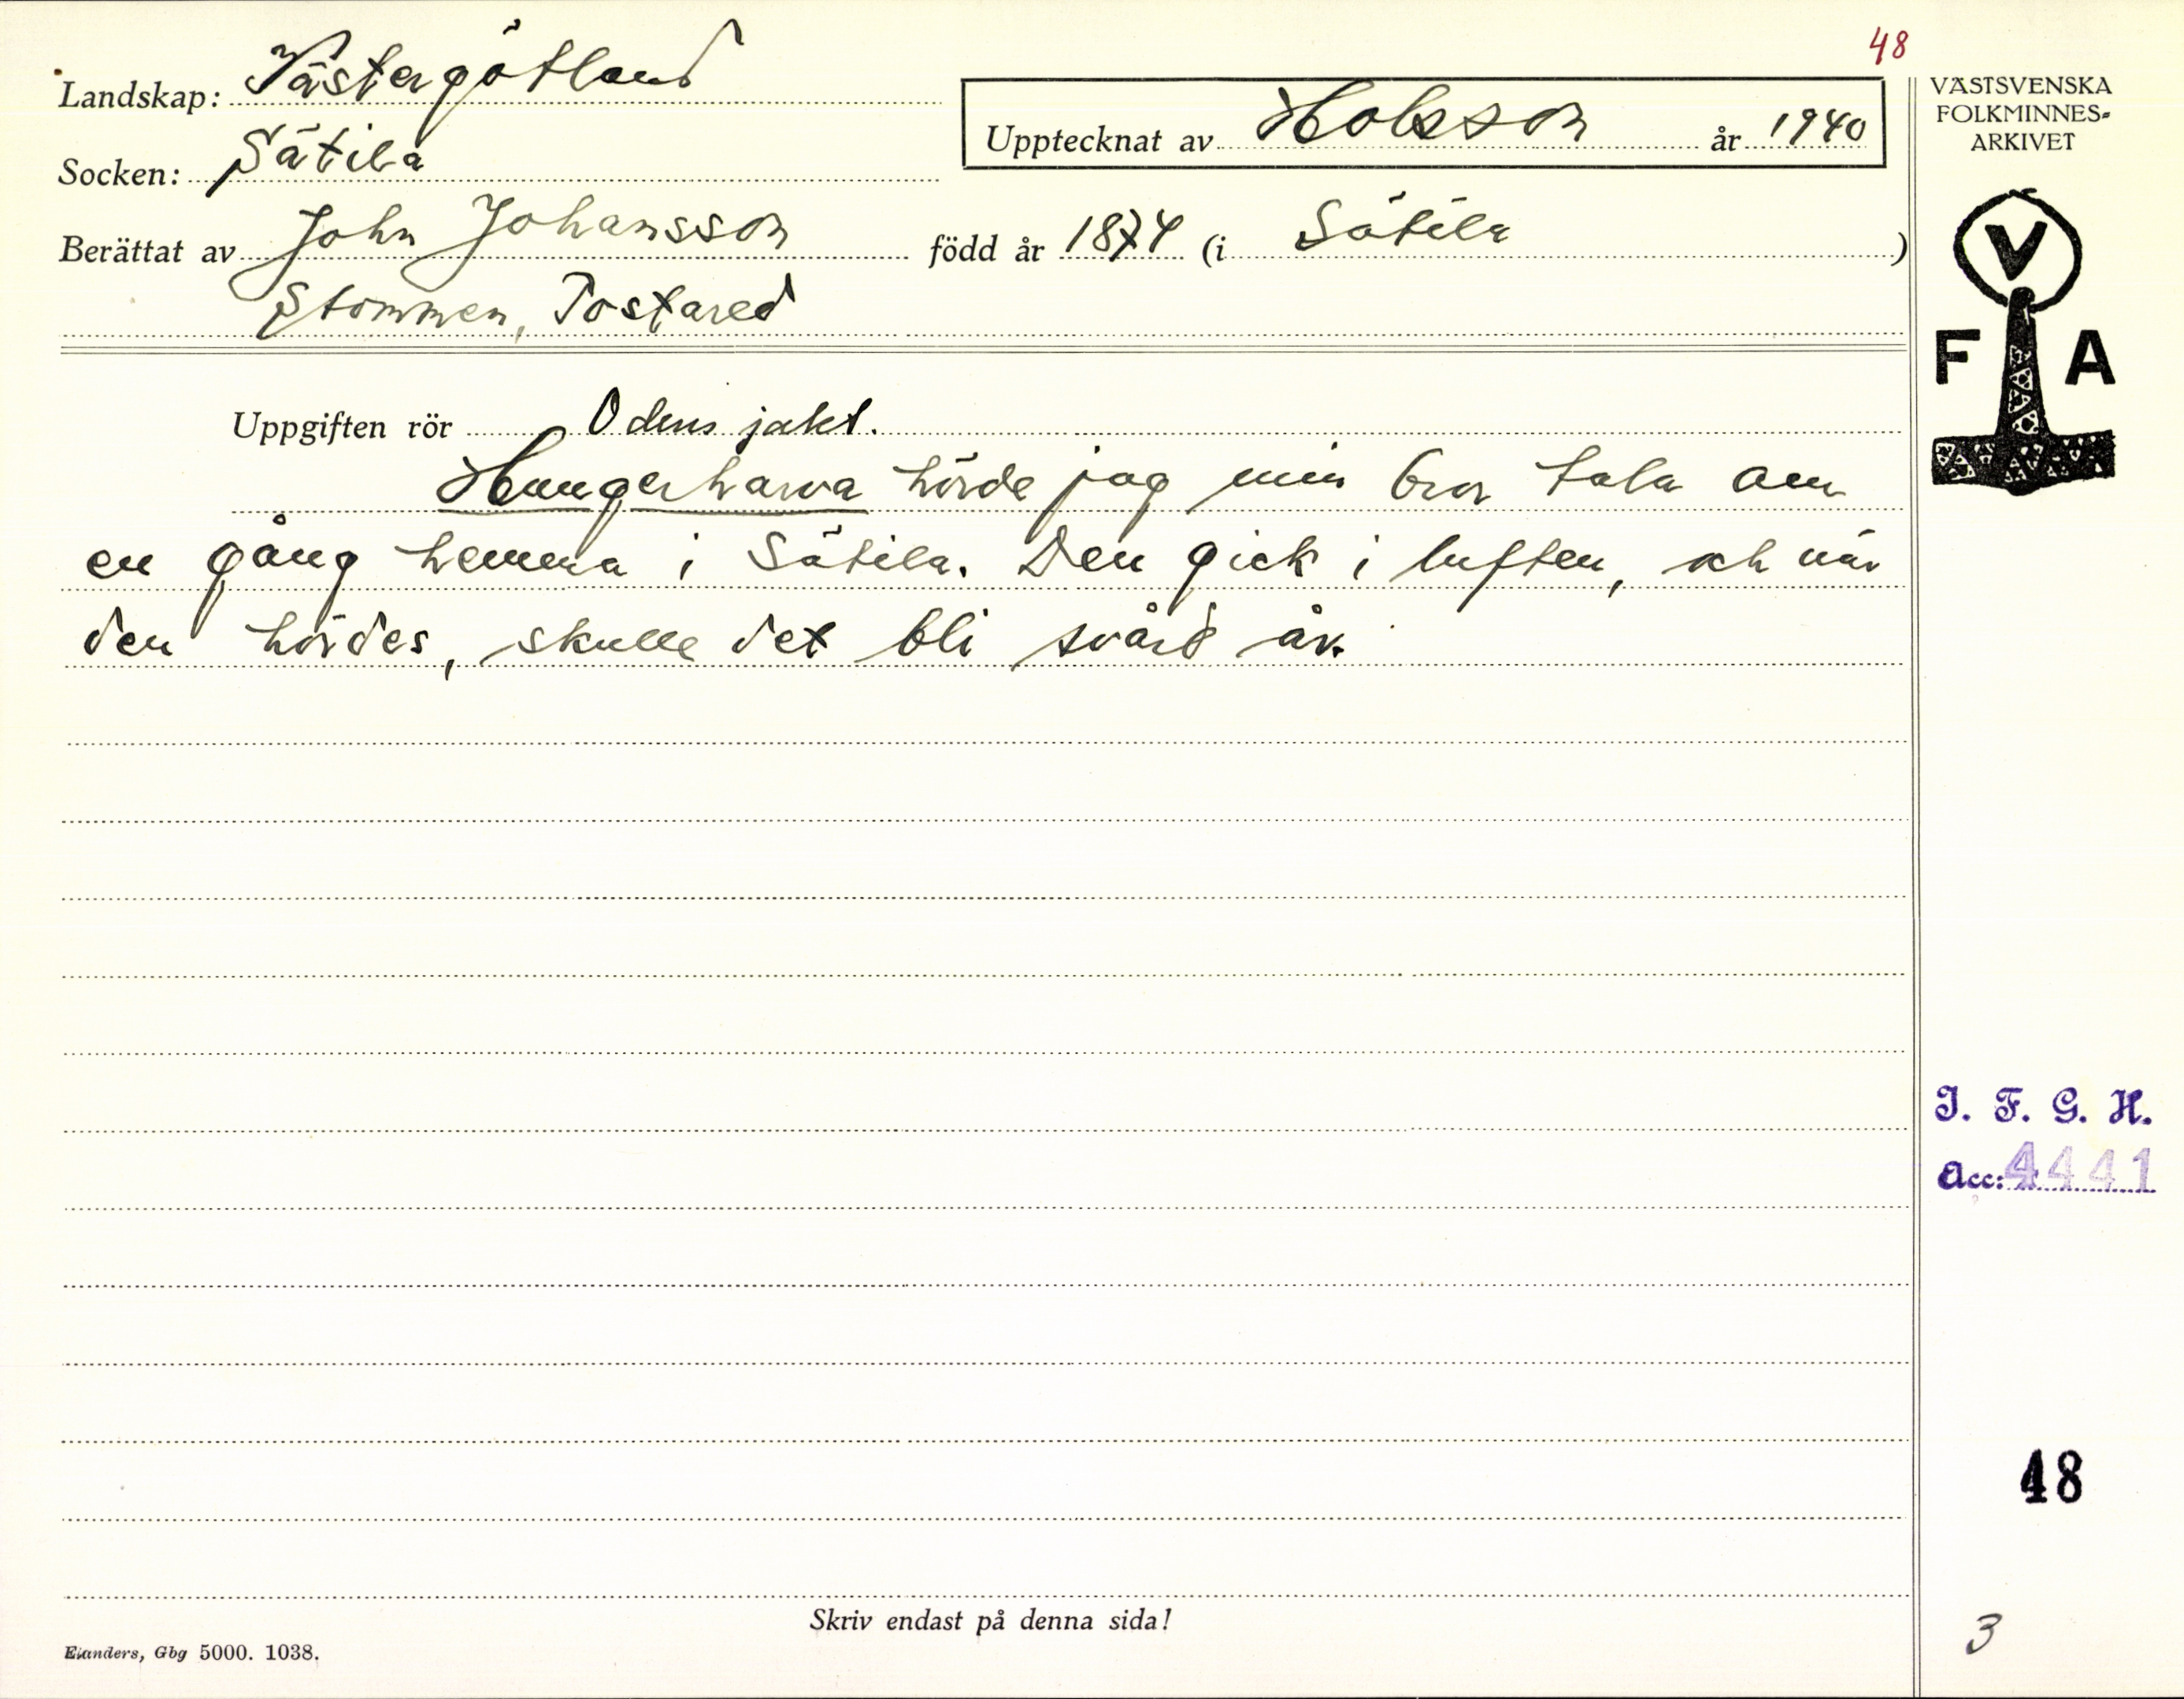 48
Landskap: Västergötland
Upptecknat av Holsson år 1940
Socken: Sätila
Berättat av John Johansson född år 1874 (i Sätila)
Stommen, Tostared
Uppgiften rör Odens jakt.
Hungerharva hörde jag min bror tala om
en gång hemma i Sätila. Den gick i luften, och när
den hördes, skulle det bli svårt år.
VÄSTSVENSKA
FOLKMINNES-
ARKIVET
V
F A
I. F. G. H.
Acc: 4441
48
3
Skriv endast på denna sida!
Elanders, Gbg 5000. 1038.